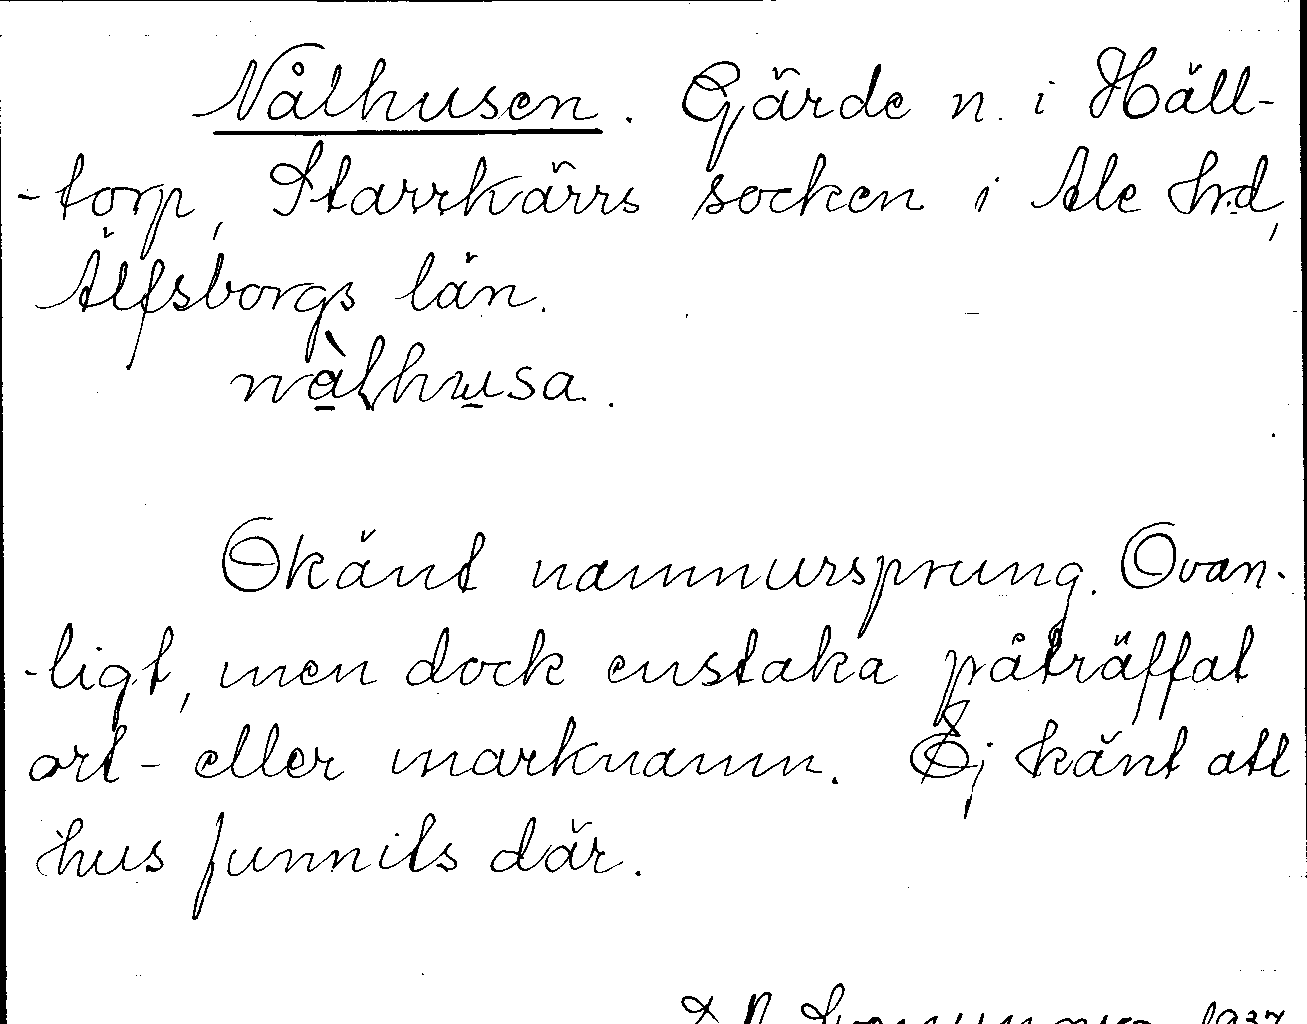 Nålhusen. Gärde n. i Häll-
-torp, Starrkärrs socken i Ale hrd,
Älfsborgs län.
nàlhusa.
Okänt namnursprung. Ovan-
-ligt, men dock enstaka påträffat
ort- eller marknamn. Ej känt att
hus funnits där.
1937